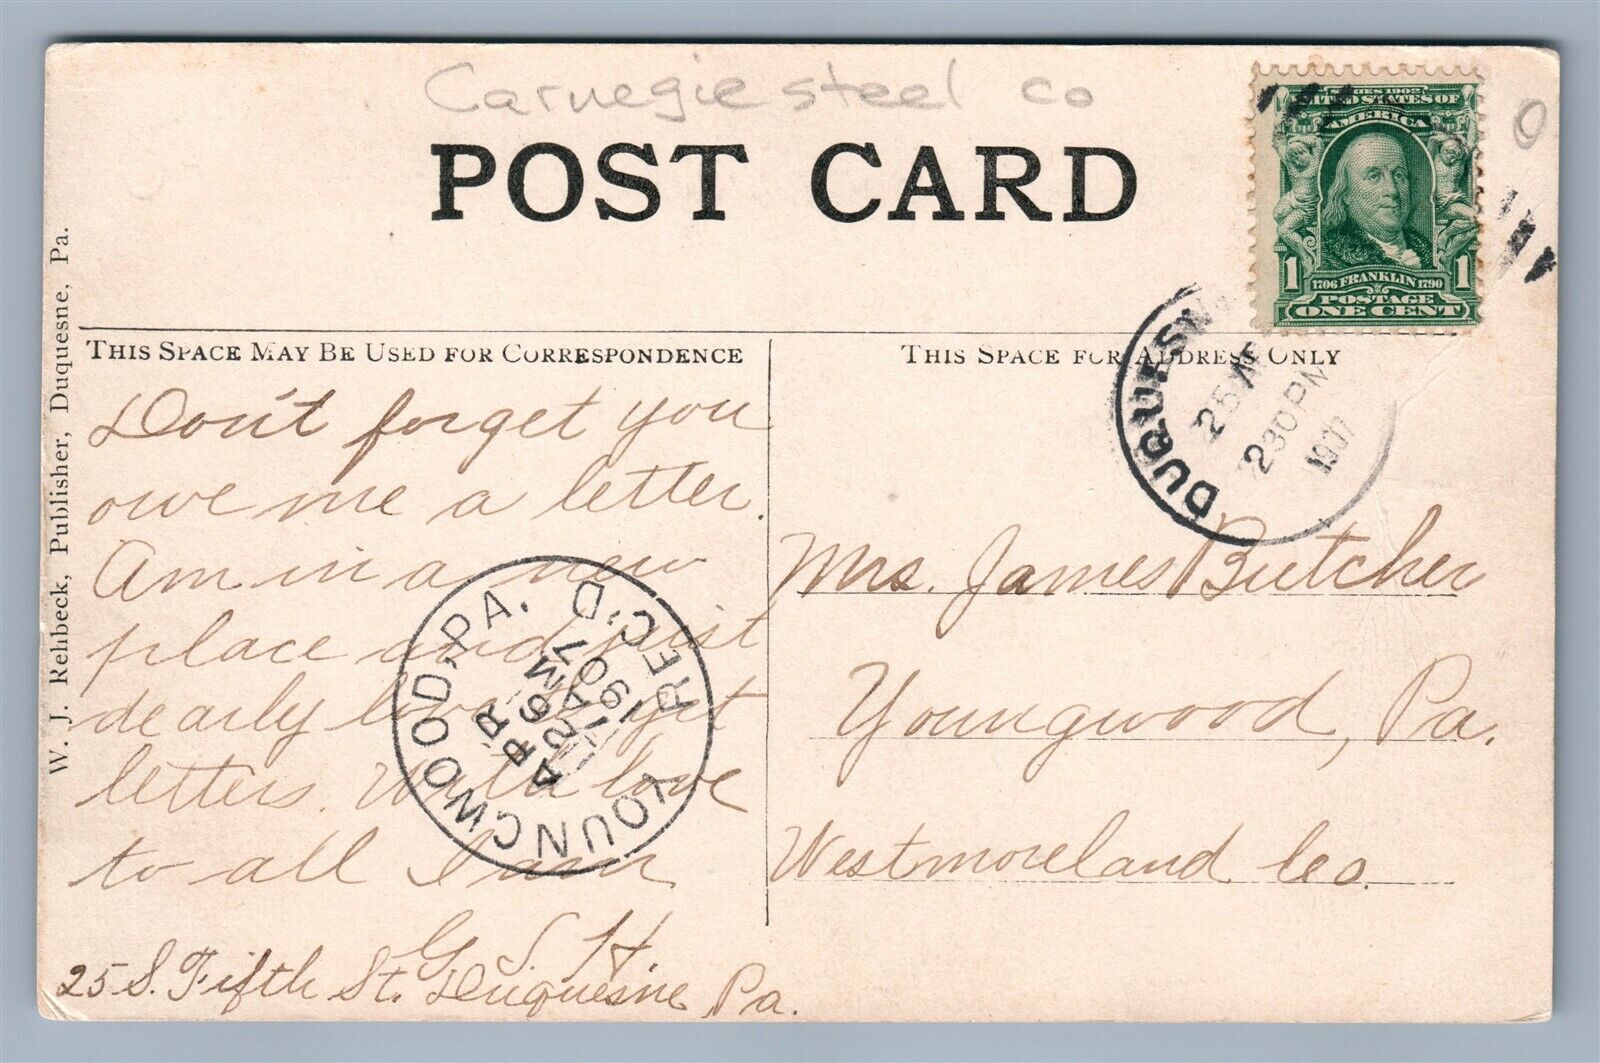 Carnegie steel co
POST CARD
SERIES 1902
UNITED STATES OF
AMERICA
1 1706 FRANKLIN 1790 1
POSTAGE
ONE CENT
O
W. J. Rehbeck, Publisher, Duquesne, Pa.
THIS SPACE MAY BE USED FOR CORRESPONDENCE
Don't forget you
owe me a letter.
Am in a new
place and just
dearly love to get
letters. With love
to all I am
G. S. H.
25 S. Fifth St. Duquesne Pa.
YOUNGWOOD, PA. REC'D.
APR
26
1907
THIS SPACE FOR ADDRESS ONLY
DUQUESNE
25
230 PM
1907
Mrs. James Butcher
Youngwood, Pa.
Westmoreland Co.